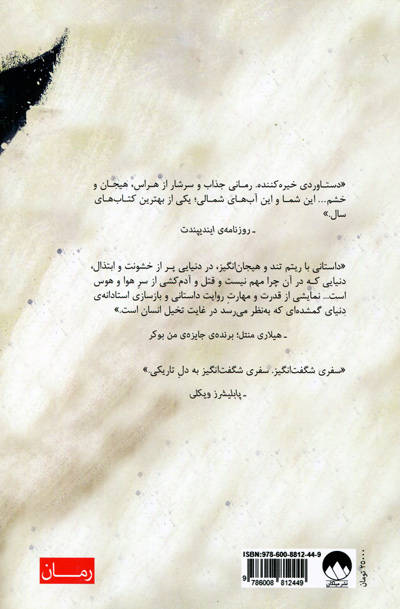 «دستاوردی خیره‌کننده. رمانی جذاب و سرشار از هراس، هیجان و
خشم... این شما و این آب‌های شمالی؛ یکی از بهترین کتاب‌های
سال.»
ـ روزنامه‌ی ایندیپندت
«داستانی با ریتم تند و هیجان‌انگیز، در دنیایی پر از خشونت و ابتذال،
دنیایی که در آن چرا مهم نیست و قتل و آدم‌کشی از سرِ هوا و هوس
است... نمایشی از قدرت و مهارتِ روایت داستانی و بازسازی استادانه‌ی
دنیای گمشده‌ای که به‌نظر می‌رسد در غایت تخیل انسان است.»
ـ هیلاری منتل؛ برنده‌ی جایزه‌ی من بوکر
«سفری شگفت‌انگیز. سفری شگفت‌انگیز به دلِ تاریکی.»
ـ پابلیشرز ویکلی
رمان
ISBN:978-600-8812-44-9
9 786008 812449
نشر میلکان
۲۵۰۰۰ تومان